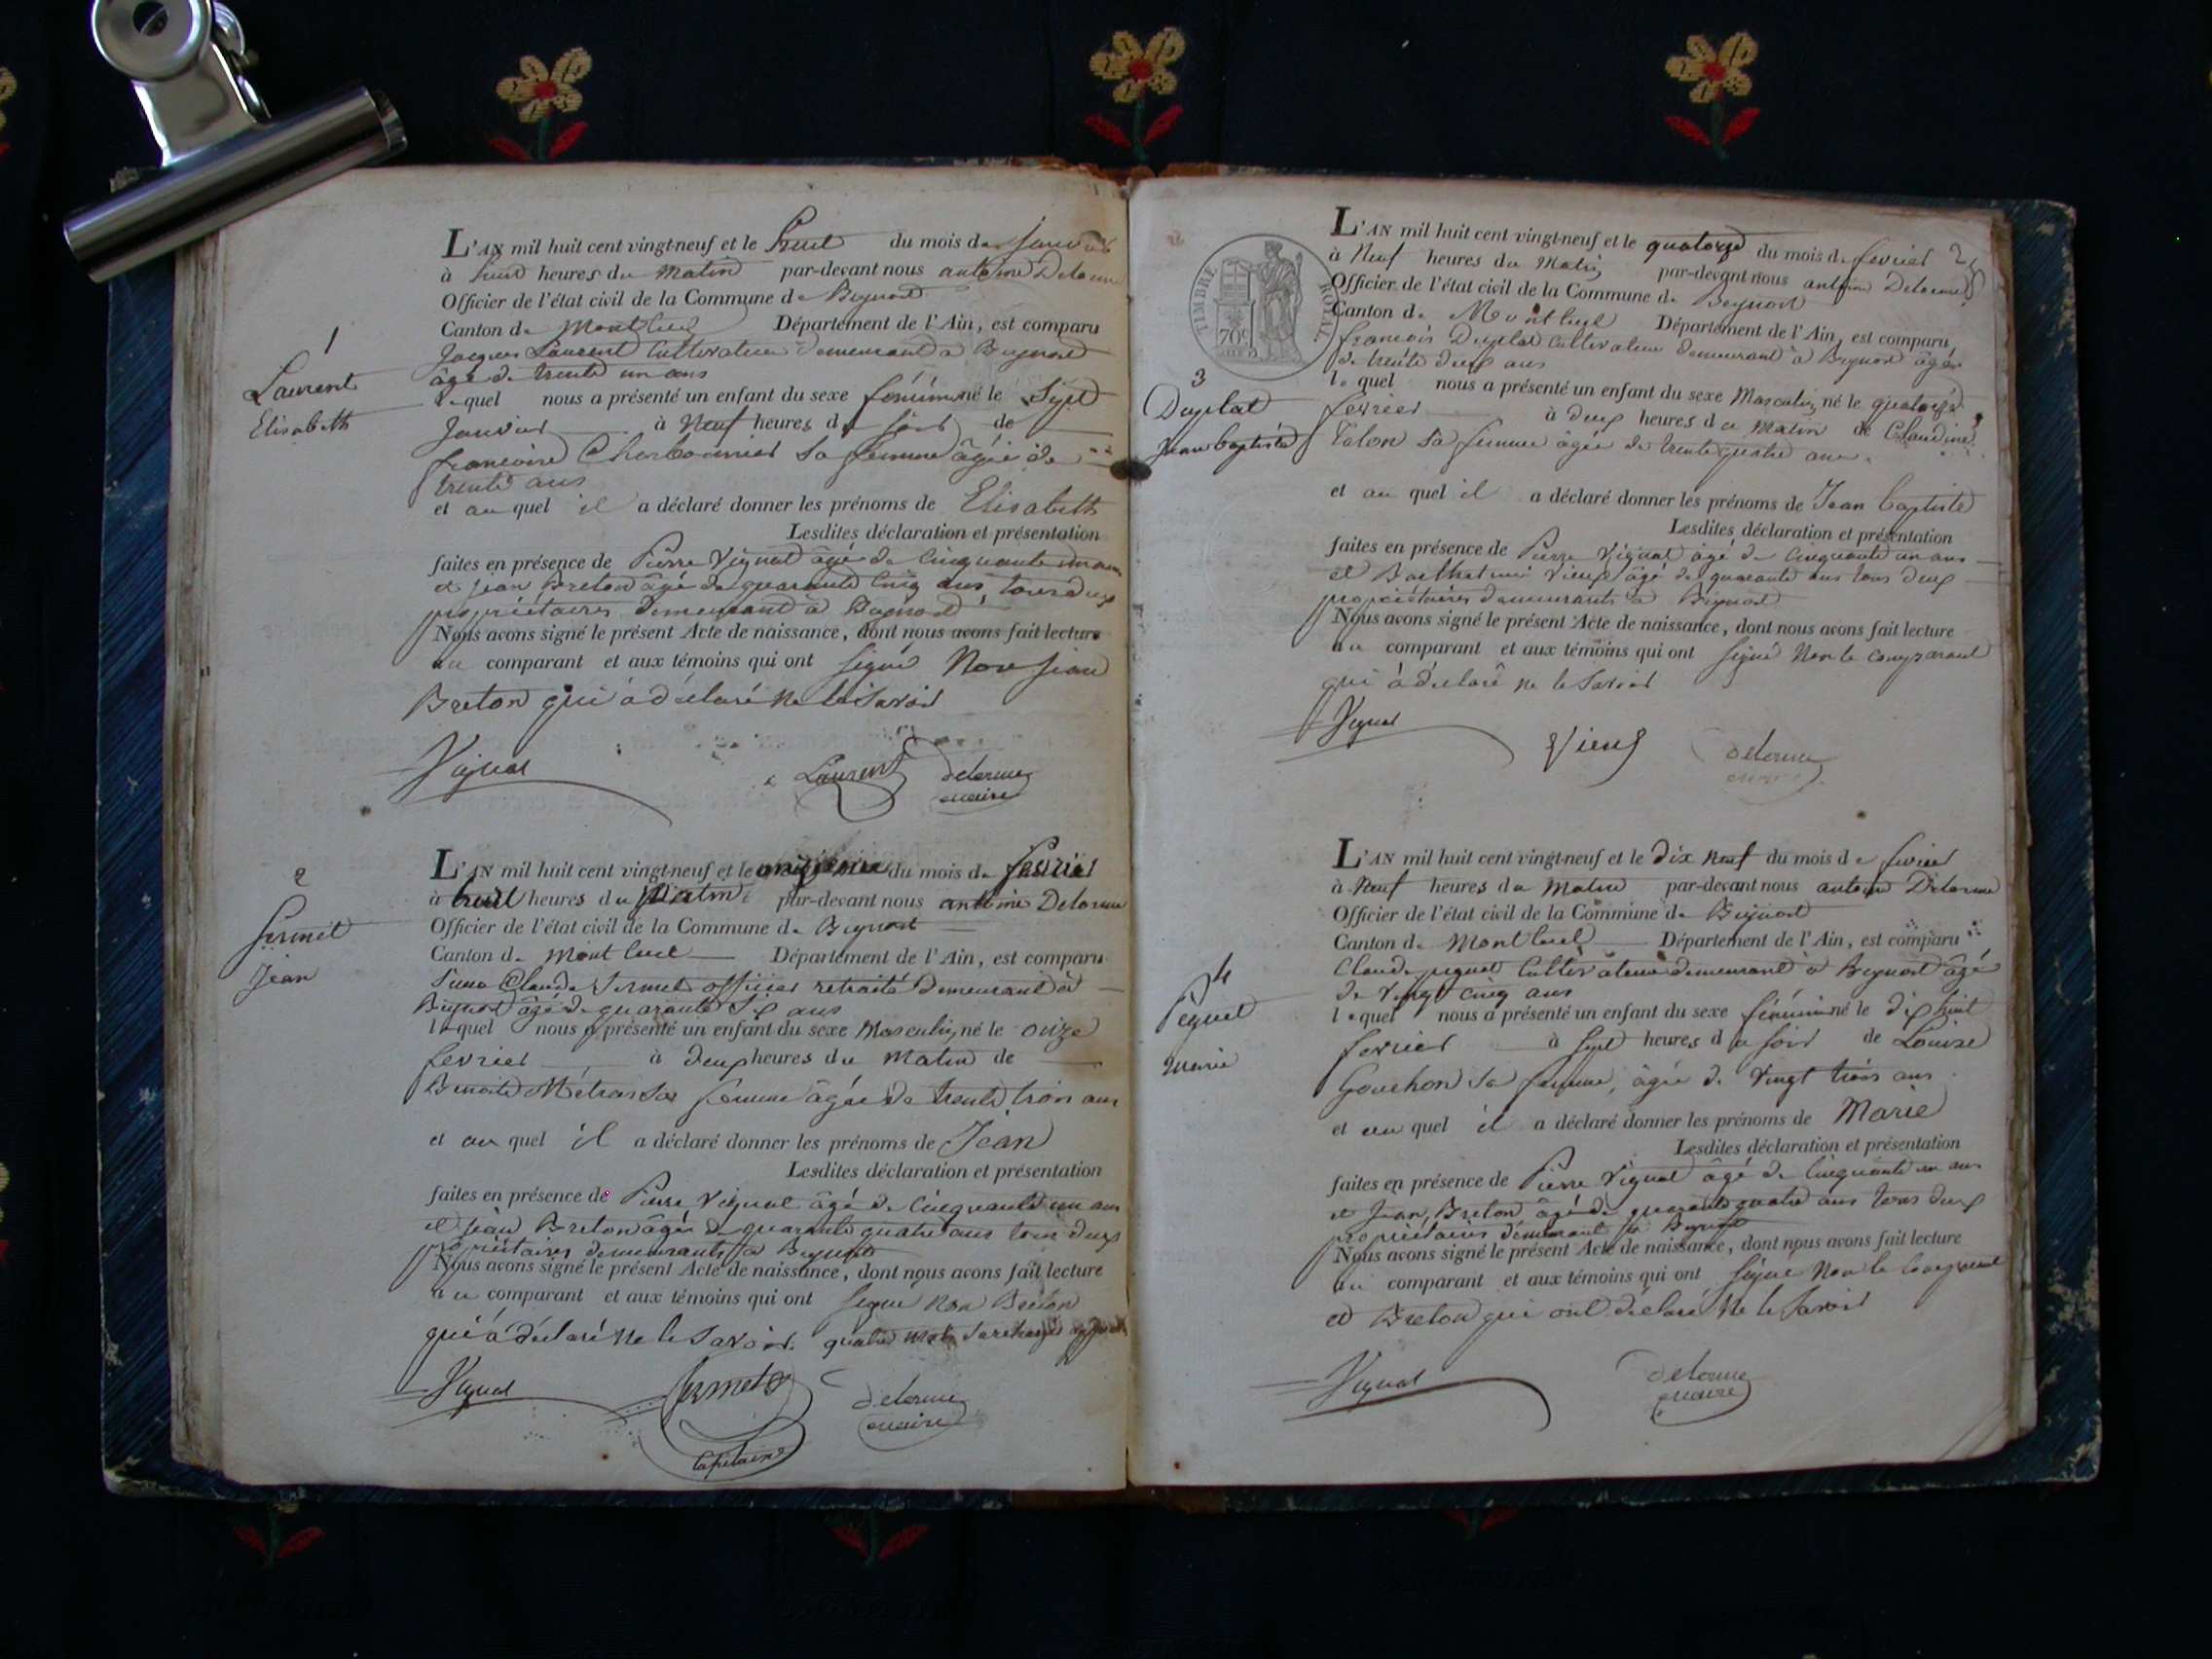 1
Laurent
Elisabeth
L'AN mil huit cent vingt-neuf et le huit du mois de janvier
à huit heures du Matin par-devant nous antoine Delorme
Officier de l'état civil de la Commune de Beynost
Canton de Montluel Département de l'Ain, est comparu
Jacques Laurent Cultivateur demeurant à Beynost
âgé de trente un ans
lequel nous a présenté un enfant du sexe féminin né le Sept
Janvier à Neuf heures du soir de
françoise Charbonnier sa femme âgée de
trente ans
et au quel il a déclaré donner les prénoms de Elisabeth
Lesdites déclaration et présentation
faites en présence de Pierre Vignat âgé de Cinquante un ans
et jean Breton âgé de quarante Cinq ans, tous deux
propriétaires demeurant à Beynost
Nous avons signé le présent Acte de naissance, dont nous avons fait lecture
au comparant et aux témoins qui ont signé Non jean
Breton qui à déclaré ne le Savoir
Vignat Laurent delorme
maire
2
Sermet
Jean
L'AN mil huit cent vingt-neuf et le onzieme du mois de fevrier
à huit heures du Matin par-devant nous antoine Delorme
Officier de l'état civil de la Commune de Beynost
Canton de Montluel Département de l'Ain, est comparu
Claude Sermet officier retraité demeurant à
Beynost âgé de quarante Six ans
lequel nous a présenté un enfant du sexe Masculin, né le onze
fevrier à deux heures du Matin de
Benoite Métras Sa femme âgée de trente trois ans
et au quel il a déclaré donner les prénoms de Jean
Lesdites déclaration et présentation
faites en présence de Pierre Vignat âgé de Cinquante un ans
et jean Breton âgé de quarante quatre ans tous deux
propriétaires demeurants à Beynost
Nous avons signé le présent Acte de naissance, dont nous avons fait lecture
au comparant et aux témoins qui ont signé Non Breton
qui à déclaré Ne le Savoir. quatre mots Surchargés
Vignat Sermet delorme
maire
Capitaine
TIMBRE ROYAL
70c
3
Duplat
Jean baptiste
L'AN mil huit cent vingt-neuf et le quatorze du mois de fevrier
à Neuf heures du Matin par-devant nous antoine Delorme
Officier de l'état civil de la Commune de Beynost
Canton de Montluel Département de l'Ain, est comparu
françois Duplat Cultivateur demeurant à Beynost âgé
de trente deux ans
lequel nous a présenté un enfant du sexe Masculin, né le quatorze
fevrier à deux heures du Matin de Claudine
Talon Sa femme âgée de trente quatre ans
et au quel il a déclaré donner les prénoms de Jean baptiste
Lesdites déclaration et présentation
faites en présence de Pierre Vignat âgé de Cinquante un ans
et Barthelemi Vieux âgé de quarante ans tous deux
propriétaires demeurants à Beynost
Nous avons signé le présent Acte de naissance, dont nous avons fait lecture
au comparant et aux témoins qui ont signé Non le comparant
qui à déclaré ne le Savoir
Vignat Vieux delorme
maire
4
Péquet
Marie
L'AN mil huit cent vingt-neuf et le dix Neuf du mois de fevrier
à Neuf heures du Matin par-devant nous antoine Delorme
Officier de l'état civil de la Commune de Beynost
Canton de Montluel Département de l'Ain, est comparu
Claude pequet Cultivateur demeurant à Beynost âgé
de Vingt Cinq ans
lequel nous a présenté un enfant du sexe féminin né le dix huit
fevrier à Sept heures du Soir de Louise
Gouchon Sa femme, âgée de Vingt trois ans
et au quel il a déclaré donner les prénoms de Marie
Lesdites déclaration et présentation
faites en présence de Pierre Vignat âgé de Cinquante un ans
et Jean Breton âgé de quarante quatre ans tous deux
propriétaires demeurant à Beynost
Nous avons signé le présent Acte de naissance, dont nous avons fait lecture
au comparant et aux témoins qui ont signé Non le Comparant
et Breton qui ont déclaré Ne le Savoir
Vignat delorme
maire